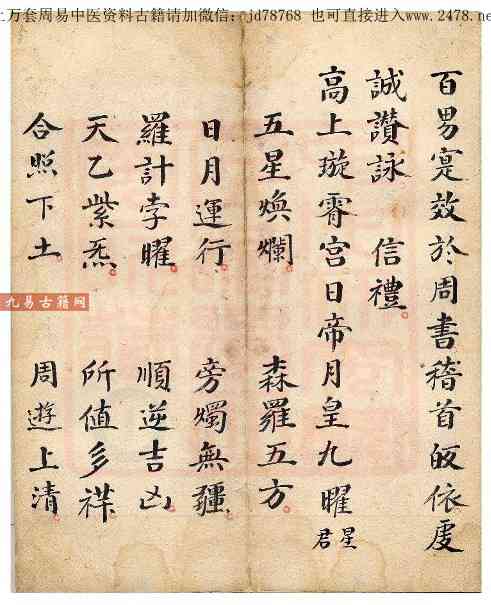 上万套周易中医资料古籍请加微信:ojd78768 也可直接进入www.2478.ne
百男寔效於周書稽首皈依虔
誠讚詠 信禮
高上璇霄宮日帝月皇九曜星君
五星煥爛 森羅五方
日月運行 旁燭無疆
羅計孛曜 順逆吉凶
天乙紫炁 所值多祥
合照下土 周遊上清
九易古籍网